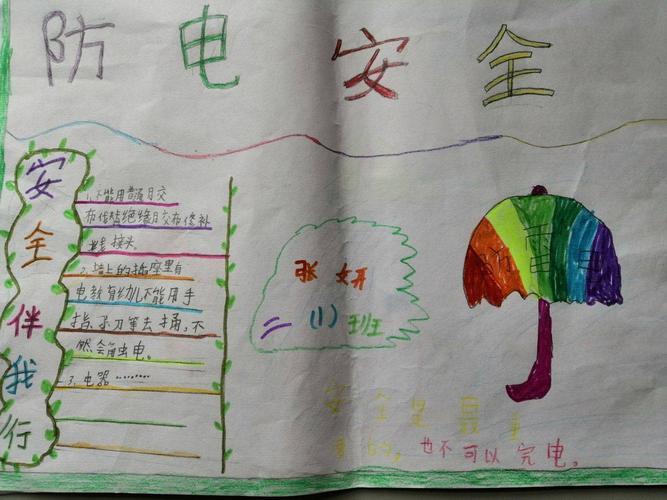 防电安全
安全伴我行
胶
布代替绝缘胶布修补
接头
2.墙上的插座里有
电教有幼儿不能用手
指,小刀笔去插,不
然会触电。
3.电器……
张妍
二(1)班
安全是最重
要的,也不可以完电。